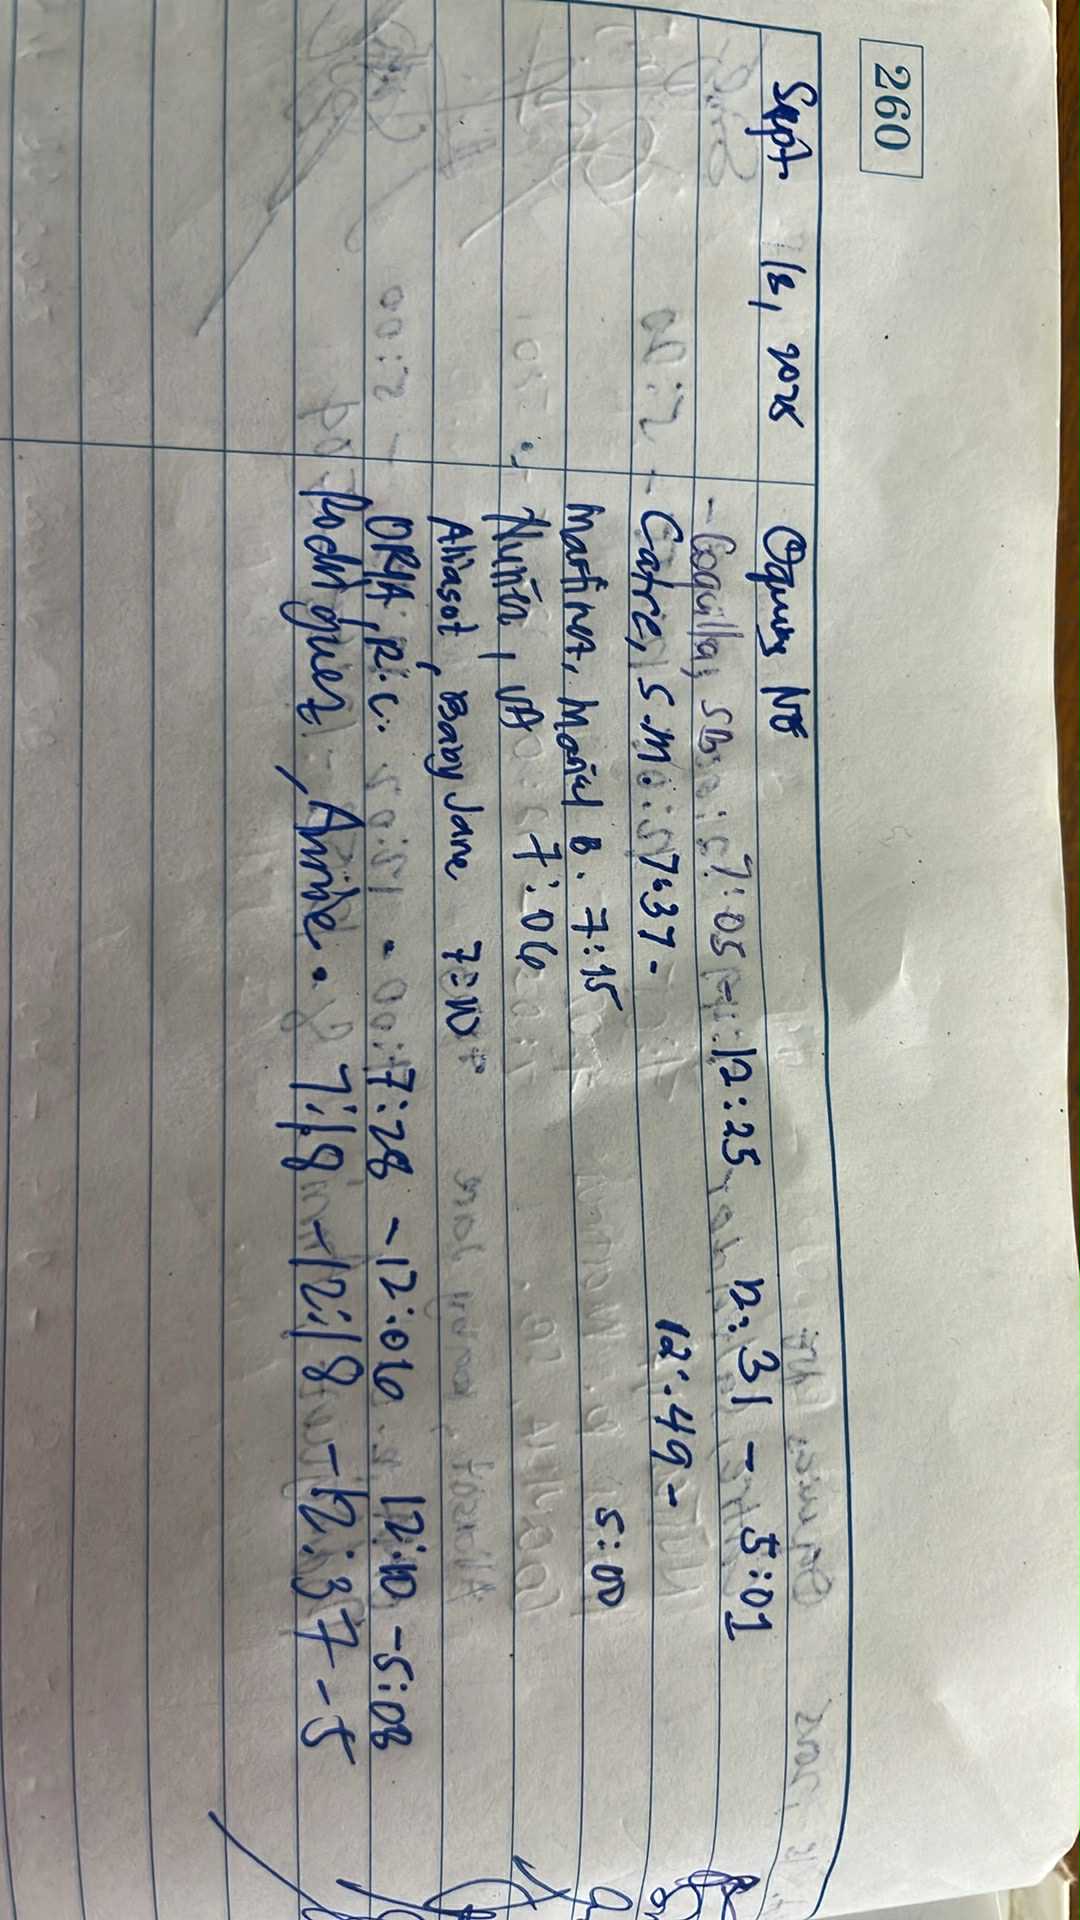 260
Sept 18, 2025
- Coquilla, 7:05 - 12:25 12:31 - 5:01
- Catre, S.M 7:37 - 12:49 -
Martinez, Marial B. 7:15 5:00
Nuñez, VA 7:06
Aliasot, Baby Jane 7:10
ORIA, R.C. 7:28 - 12:06 12:10 - 5:03
Rodriguez, Annie. 7:18 - 12:18 - 12:37 - 5